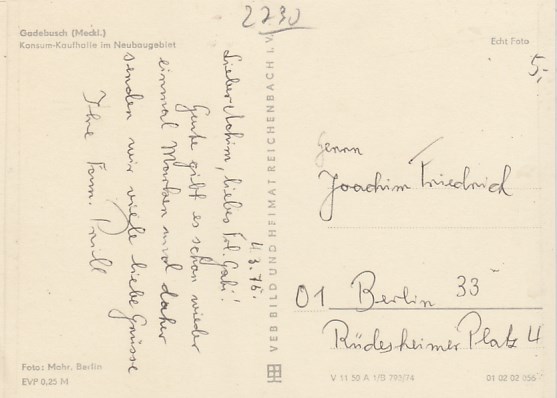 2730
Gadebusch (Meckl.)
Konsum-Kaufhalle im Neubaugebiet
Echt Foto
5,-
4.3.76.
Lieber Achim, liebes Frl. Gabi!
Heute gibt es schon wieder
einmal Marken und daher
senden wir viele liebe Grüsse
Ihre Fam. Prill
VEB BILD UND HEIMAT REICHENBACH I. V.
Herrn
Joachim Friedrich
01 Berlin 33
Rüdesheimer Platz 4
Foto: Mohr, Berlin
EVP 0,25 M
V 11 50 A 1/B 793/74
01 02 02 056